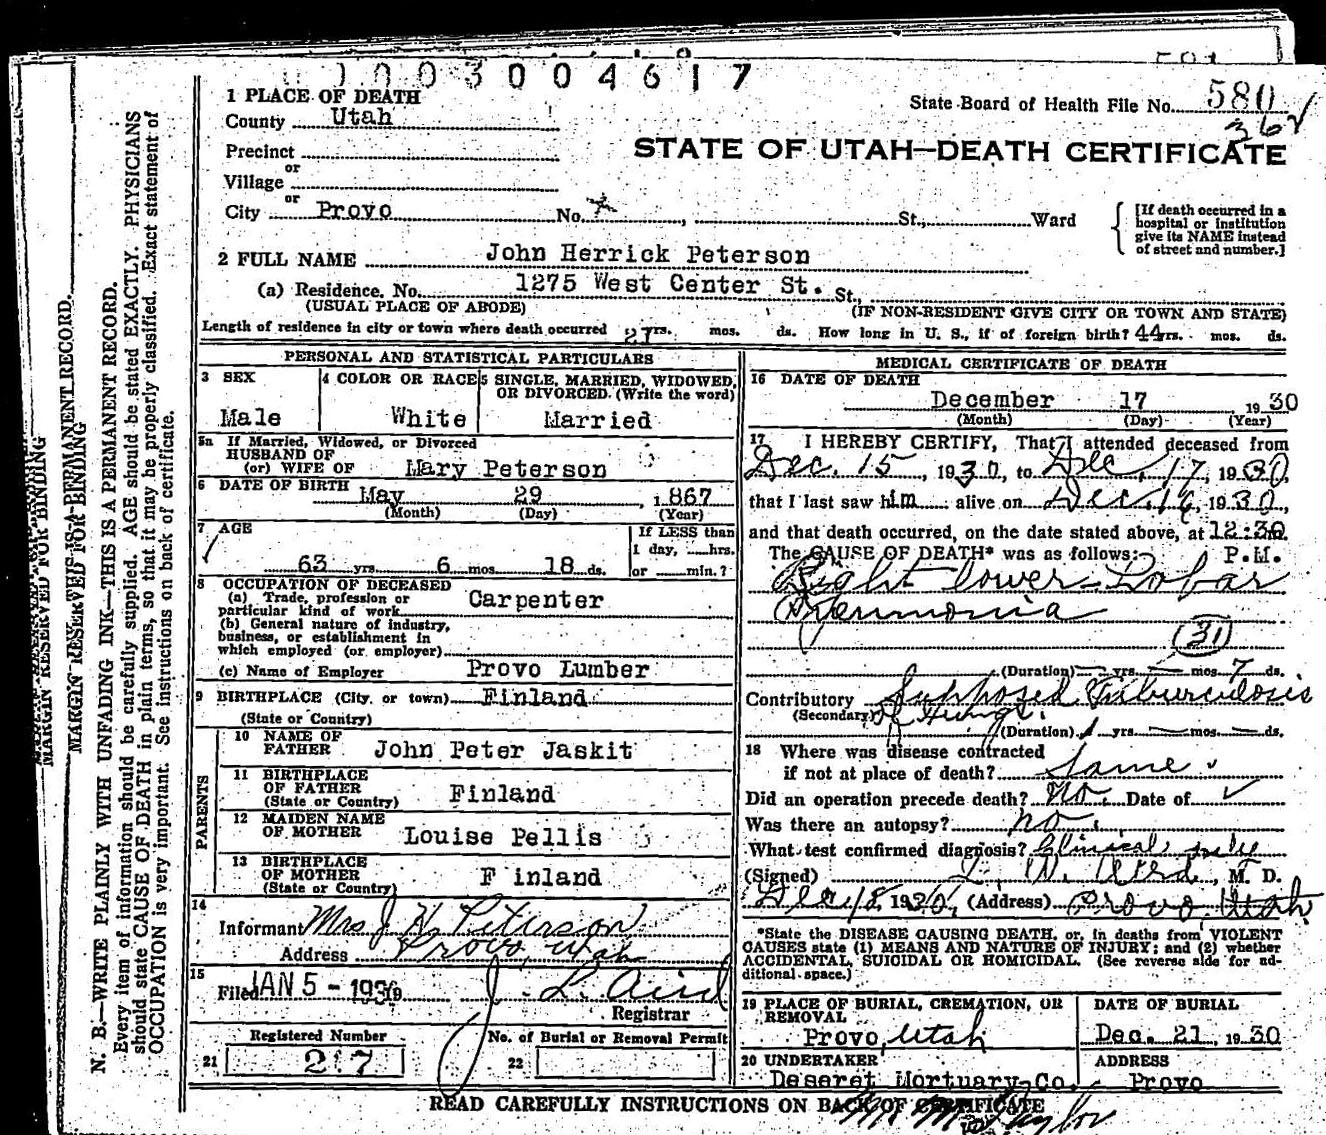 0 0 0 3 0 0 4 6 1 7
1 PLACE OF DEATH
State Board of Health File No. 580
362
County Utah
STATE OF UTAH—DEATH CERTIFICATE
Precinct
or
Village
or
City Provo No. St., Ward
[If death occurred in a hospital or institution give its NAME instead of street and number.]
2 FULL NAME John Herrick Peterson
(a) Residence, No. 1275 West Center St. St.,
(USUAL PLACE OF ABODE) (IF NON-RESIDENT GIVE CITY OR TOWN AND STATE)
Length of residence in city or town where death occurred 27 yrs. mos. ds. How long in U. S., if of foreign birth? 44 yrs. mos. ds.
PERSONAL AND STATISTICAL PARTICULARS
3 SEX
Male
4 COLOR OR RACE
White
5 SINGLE, MARRIED, WIDOWED, OR DIVORCED. (Write the word)
Married
5a If Married, Widowed, or Divorced
HUSBAND OF
(or) WIFE OF Mary Peterson
6 DATE OF BIRTH May 29 1867
(Month) (Day) (Year)
7 AGE
63 yrs 6 mos. 18 ds.
If LESS than
1 day, hrs.
or min.?
8 OCCUPATION OF DECEASED
(a) Trade, profession or
particular kind of work Carpenter
(b) General nature of industry,
business, or establishment in
which employed (or employer)
(c) Name of Employer Provo Lumber
9 BIRTHPLACE (City or town) Finland
(State or Country)
PARENTS
10 NAME OF
FATHER John Peter Jaskit
11 BIRTHPLACE
OF FATHER
(State or Country) Finland
12 MAIDEN NAME
OF MOTHER Louise Pellis
13 BIRTHPLACE
OF MOTHER
(State or Country) Finland
14
Informant Mrs J H Peterson
Address Provo, Utah
15
Filed JAN 5 - 193 J. L. Aird
Registrar
Registered Number
21 217
No. of Burial or Removal Permit
22
MEDICAL CERTIFICATE OF DEATH
16 DATE OF DEATH
December 17 1930
(Month) (Day) (Year)
17 I HEREBY CERTIFY, That I attended deceased from
Dec. 15, 1930, to Dec. 17, 1930,
that I last saw him alive on Dec. 16, 1930,
and that death occurred, on the date stated above, at 12:30 m.
The CAUSE OF DEATH* was as follows: P.M.
Right lower Lobar
Pneumonia
(31)
(Duration) yrs. mos. 7 ds.
Contributory Supposed Tuburculosis
(Secondary) of Lungs.
(Duration) 1 yrs. mos. ds.
18 Where was disease contracted
if not at place of death? Same
Did an operation precede death? No. Date of
Was there an autopsy? no.
What test confirmed diagnosis? Clinical only
(Signed) M. D.
Dec 18, 1930, (Address) Provo, Utah
*State the DISEASE CAUSING DEATH, or, in deaths from VIOLENT
CAUSES state (1) MEANS AND NATURE OF INJURY; and (2) whether
ACCIDENTAL, SUICIDAL OR HOMICIDAL. (See reverse side for ad-
ditional space.)
19 PLACE OF BURIAL, CREMATION, OR
REMOVAL
Provo, Utah
DATE OF BURIAL
Dec. 21, 1930
20 UNDERTAKER
Deseret Mortuary Co.
ADDRESS
Provo
READ CAREFULLY INSTRUCTIONS ON BACK OF CERTIFICATE
MARGIN RESERVED FOR BINDING
N. B.—WRITE PLAINLY WITH UNFADING INK—THIS IS A PERMANENT RECORD.
Every item of information should be carefully supplied. AGE should be stated EXACTLY. PHYSICIANS
should state CAUSE OF DEATH in plain terms, so that it may be properly classified. Exact statement of
OCCUPATION is very important. See instructions on back of certificate.